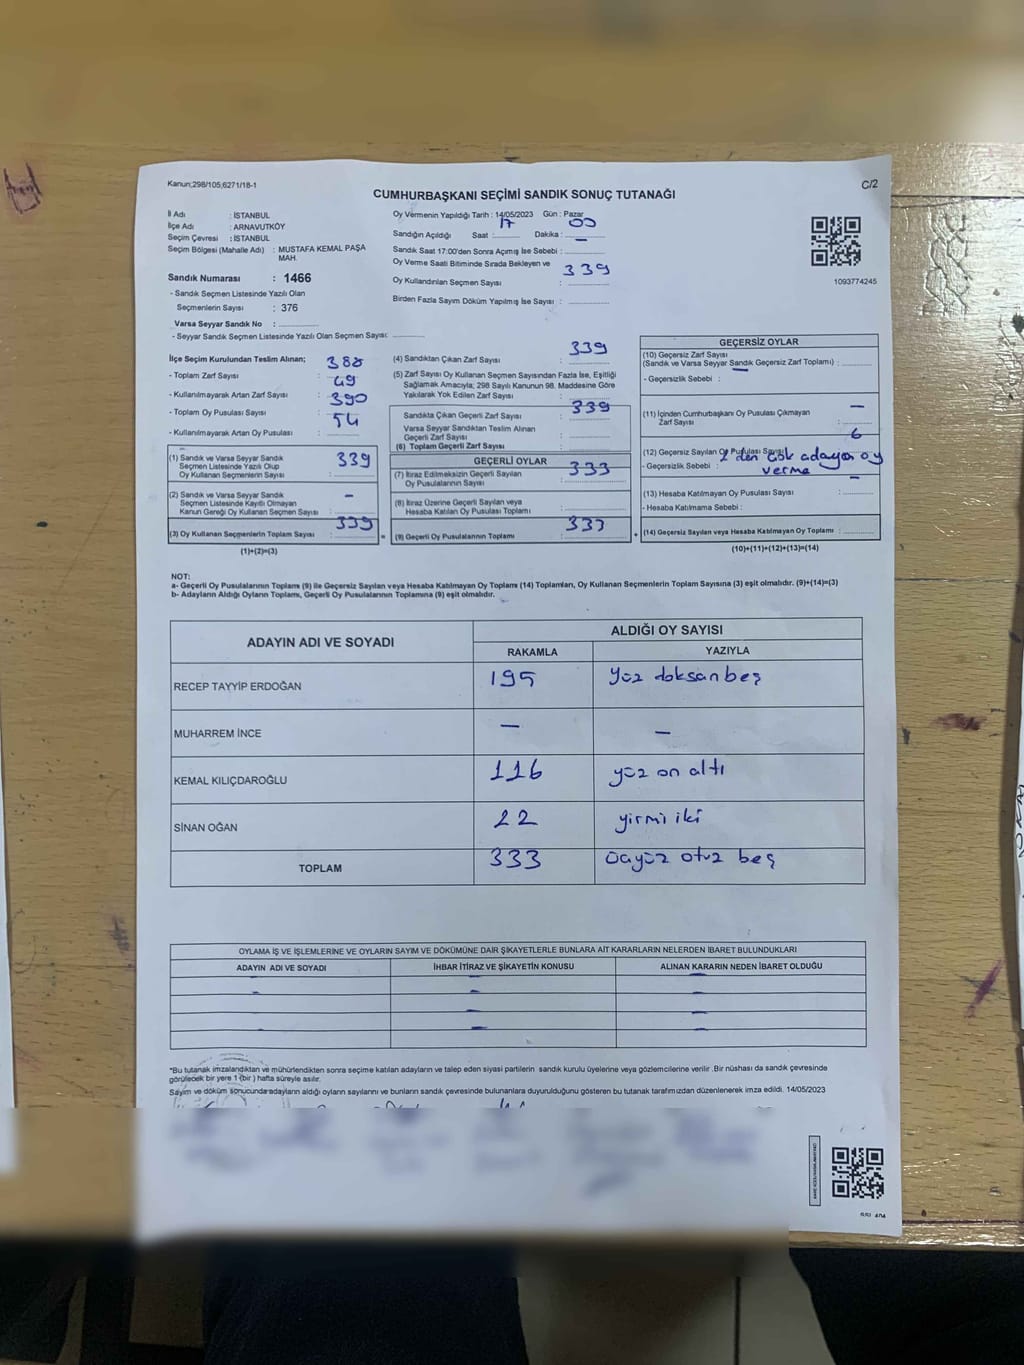 Kanun;298/105;6271/18-1
C/2
CUMHURBAŞKANI SEÇİMİ SANDIK SONUÇ TUTANAĞI
İl Adı : İSTANBUL
İlçe Adı : ARNAVUTKÖY
Seçim Çevresi : İSTANBUL
Seçim Bölgesi (Mahalle Adı) : MUSTAFA KEMAL PAŞA
MAH.
Sandık Numarası : 1466
- Sandık Seçmen Listesinde Yazılı Olan
Seçmenlerin Sayısı : 376
Varsa Seyyar Sandık No : ............
- Seyyar Sandık Seçmen Listesinde Yazılı Olan Seçmen Sayısı: ............
Oy Vermenin Yapıldığı Tarih : 14/05/2023 Gün : Pazar
Sandığın Açıldığı Saat : 17 Dakika : 00
Sandık Saat 17:00'den Sonra Açımış İse Sebebi : —
Oy Verme Saati Bitiminde Sırada Bekleyen ve
Oy Kullandırılan Seçmen Sayısı : 339
Birden Fazla Sayım Döküm Yapılmış İse Sayısı : ............
1093774245
İlçe Seçim Kurulundan Teslim Alınan;
- Toplam Zarf Sayısı : 388
- Kullanılmayarak Artan Zarf Sayısı : 49
- Toplam Oy Pusulası Sayısı : 390
- Kullanılmayarak Artan Oy Pusulası : 54
(1) Sandık ve Varsa Seyyar Sandık
Seçmen Listesinde Yazılı Olup
Oy Kullanan Seçmenlerin Sayısı : 339
(2) Sandık ve Varsa Seyyar Sandık
Seçmen Listesinde Kayıtlı Olmayan
Kanun Gereği Oy Kullanan Seçmen Sayısı : —
(3) Oy Kullanan Seçmenlerin Toplam Sayısı : 339
(1)+(2)=(3)
(4) Sandıktan Çıkan Zarf Sayısı : 339
(5) Zarf Sayısı Oy Kullanan Seçmen Sayısından Fazla İse, Eşitliği
Sağlamak Amacıyla; 298 Sayılı Kanunun 98. Maddesine Göre
Yakılarak Yok Edilen Zarf Sayısı : ............
Sandıkta Çıkan Geçerli Zarf Sayısı : 339
Varsa Seyyar Sandıktan Teslim Alınan
Geçerli Zarf Sayısı : ............
(6) Toplam Geçerli Zarf Sayısı : ............
GEÇERLİ OYLAR
(7) İtiraz Edilmeksizin Geçerli Sayılan
Oy Pusulalarının Sayısı : 333
(8) İtiraz Üzerine Geçerli Sayılan veya
Hesaba Katılan Oy Pusulası Toplamı : ............
(9) Geçerli Oy Pusulalarının Toplamı : 333
GEÇERSİZ OYLAR
(10) Geçersiz Zarf Sayısı
(Sandık ve Varsa Seyyar Sandık Geçersiz Zarf Toplamı) : ............
- Geçersizlik Sebebi : —
(11) İçinden Cumhurbaşkanı Oy Pusulası Çıkmayan
Zarf Sayısı : —
(12) Geçersiz Sayılan Oy Pusulası Sayısı : 6
- Geçersizlik Sebebi : 2 den çok adayan oy
verme
(13) Hesaba Katılmayan Oy Pusulası Sayısı : —
- Hesaba Katılmama Sebebi : ............
(14) Geçersiz Sayılan veya Hesaba Katılmayan Oy Toplamı : ............
(10)+(11)+(12)+(13)=(14)
NOT:
a- Geçerli Oy Pusulalarının Toplamı (9) ile Geçersiz Sayılan veya Hesaba Katılmayan Oy Toplamı (14) Toplamları, Oy Kullanan Seçmenlerin Toplam Sayısına (3) eşit olmalıdır. (9)+(14)=(3)
b- Adayların Aldığı Oyların Toplamı, Geçerli Oy Pusulalarının Toplamına (9) eşit olmalıdır.
ADAYIN ADI VE SOYADI ALDIĞI OY SAYISI
RAKAMLA YAZIYLA
RECEP TAYYİP ERDOĞAN 195 yüz doksan beş
MUHARREM İNCE — —
KEMAL KILIÇDAROĞLU 116 yüz on altı
SİNAN OĞAN 22 yirmi iki
TOPLAM 333 üçyüz otuz beş
OYLAMA İŞ VE İŞLEMLERİNE VE OYLARIN SAYIM VE DÖKÜMÜNE DAİR ŞİKAYETLERLE BUNLARA AİT KARARLARIN NELERDEN İBARET BULUNDUKLARI
ADAYIN ADI VE SOYADI İHBAR İTİRAZ VE ŞİKAYETİN KONUSU ALINAN KARARIN NEDEN İBARET OLDUĞU
*Bu tutanak imzalandıktan ve mühürlendikten sonra seçime katılan adayların ve talep eden siyasi partilerin sandık kurulu üyelerine veya gözlemcilerine verilir. Bir nüshası da sandık çevresinde
görülecek bir yere 1 (bir) hafta süreyle asılır.
Sayım ve döküm sonucunda adayların aldığı oyların sayılarını ve bunların sandık çevresinde bulunanlara duyurulduğunu gösteren bu tutanak tarafımızdan düzenlenerek imza edildi. 14/05/2023